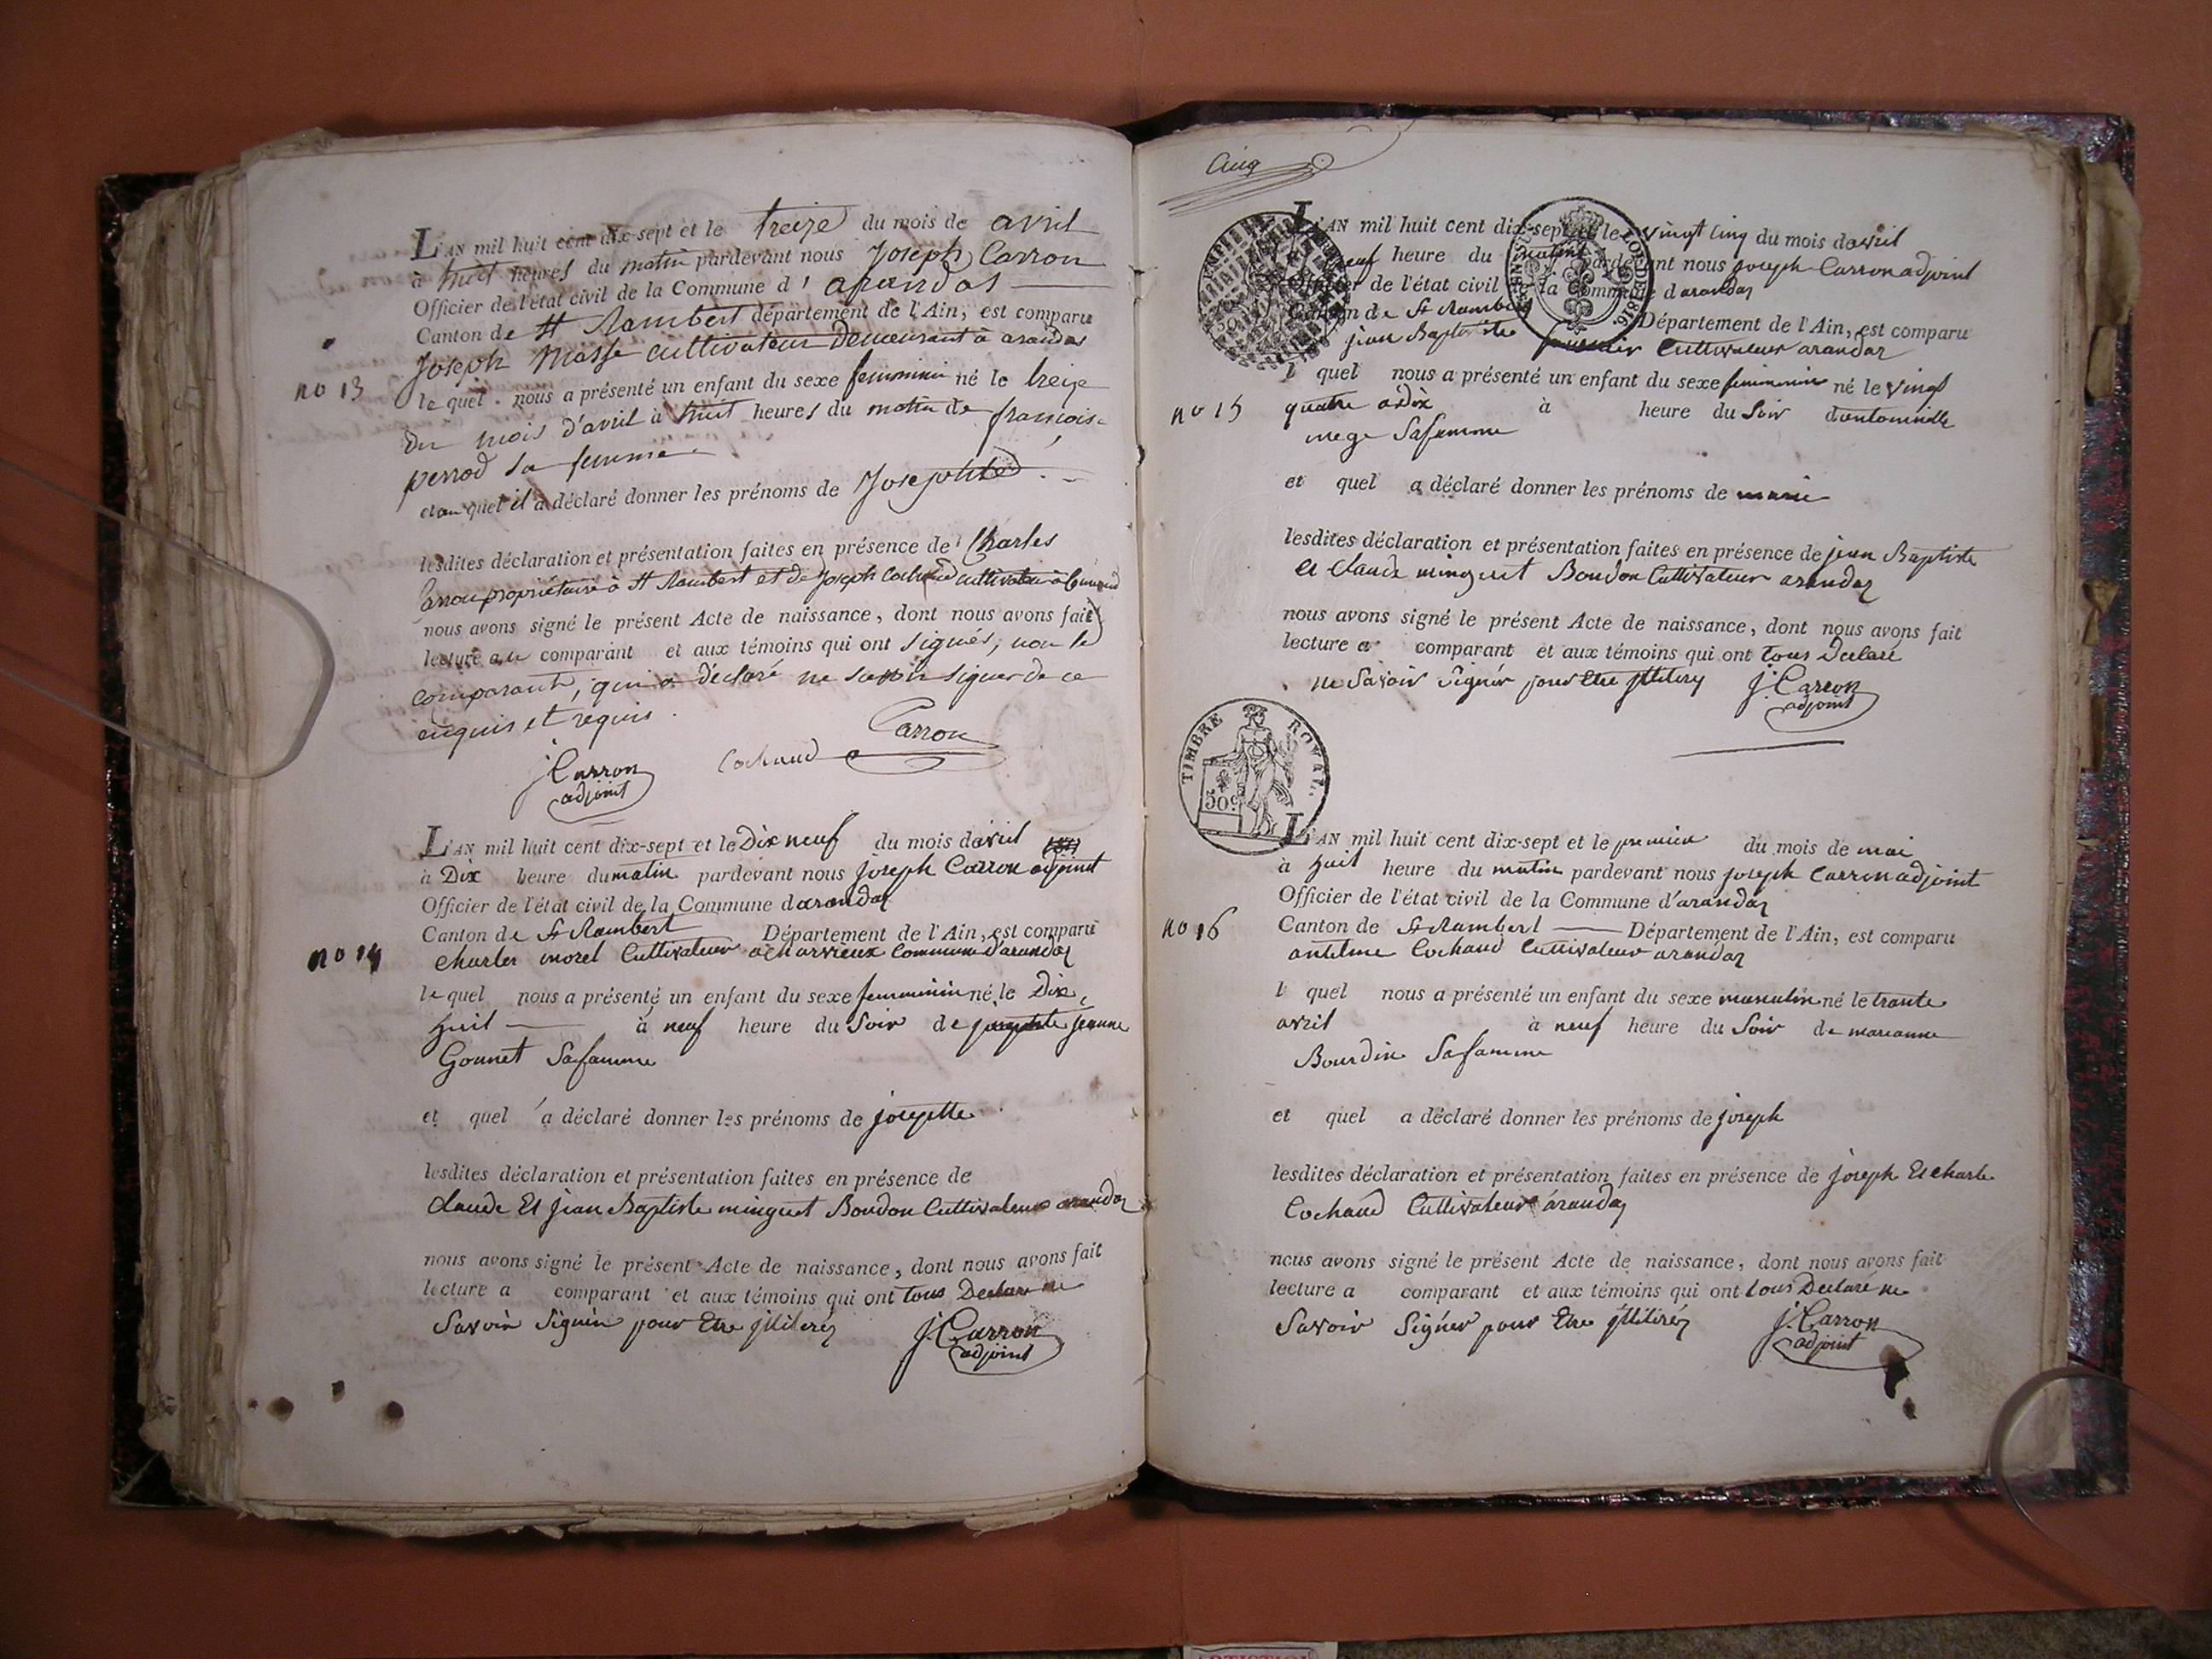 L'AN mil huit cent dix-sept et le treize du mois de avril
à huit heures du matin pardevant nous Joseph Carron
Officier de l'état civil de la Commune d'arandas
Canton de St Rambert département de l'Ain, est comparu
Joseph Masse cultivateur Demeurant à arandas
no 13
le quel nous a présenté un enfant du sexe feminin né le treize
du mois d'avril à huit heures du matin de françoise
perrod sa femme
et auquel il a déclaré donner les prénoms de Josephte
lesdites déclaration et présentation faites en présence de Charles
Carron propriétaire à St Rambert et de Joseph Cochaud cultivateur à
nous avons signé le présent Acte de naissance, dont nous avons fait
lecture au comparant et aux témoins qui ont signés, non le
comparant, qui a déclaré ne savoir signer de ce
enquis et requis.
Carron
Cochaud
J Carron
adjoint
L'AN mil huit cent dix-sept et le Dix neuf du mois davril
à Dix heure du matin pardevant nous joseph Carron adjoint
Officier de l'état civil de la Commune darandaz
Canton de St Rambert Département de l'Ain, est comparu
no 14
charles morel Cultivateur acharvieux Commune d'arandaz
le quel nous a présenté un enfant du sexe femminin né le Dix
huit à neuf heure du Soir de josephte jeanne
Gonnet Safamme
et quel a déclaré donner les prénoms de josephte
lesdites déclaration et présentation faites en présence de
claude Et jean Baptiste minguet Boudon Cultivateur arandaz
nous avons signé le présent Acte de naissance, dont nous avons fait
lecture a comparant et aux témoins qui ont tous Declare ne
Savoir Signér pour Etre jlliterez
J. Carron
adjoint
Cinq
L'AN mil huit cent dix-sept et le vingt cinq du mois davril
neuf heure du matin pardevant nous joseph Carron adjoint
Officier de l'état civil de la Commune darandaz
Canton de St Rambert Département de l'Ain, est comparu
jean Baptiste Cultivateur arandaz
l quel nous a présenté un enfant du sexe femminin né le vingt
no 15
quatre adix à heure du Soir dantoinette
mege Safamme
et quel a déclaré donner les prénoms de marie
lesdites déclaration et présentation faites en présence de jean Baptiste
Et claude minguet Boudon Cultivateur arandaz
nous avons signé le présent Acte de naissance, dont nous avons fait
lecture a comparant et aux témoins qui ont tous Declaré
ne Savoir Signér pour Etre jlliterez
J. Carron
adjoint
TIMBRE ROYAL.
50c
L'AN mil huit cent dix-sept et le premier du mois de mai
à huit heure du matin pardevant nous joseph Carron adjoint
Officier de l'état civil de la Commune d'arandaz
no 16
Canton de St Rambert Département de l'Ain, est comparu
antelme Cochaud Cultivateur arandaz
l quel nous a présenté un enfant du sexe masculin né le trante
avril à neuf heure du Soir de marianne
Bourdin Safamme
et quel a déclaré donner les prénoms de joseph
lesdites déclaration et présentation faites en présence de joseph Et charle
Cochaud Cultivateur arandaz
nous avons signé le présent Acte de naissance, dont nous avons fait
lecture a comparant et aux témoins qui ont tous Declare ne
Savoir Signér pour Etre jlliterez
J. Carron
adjoint